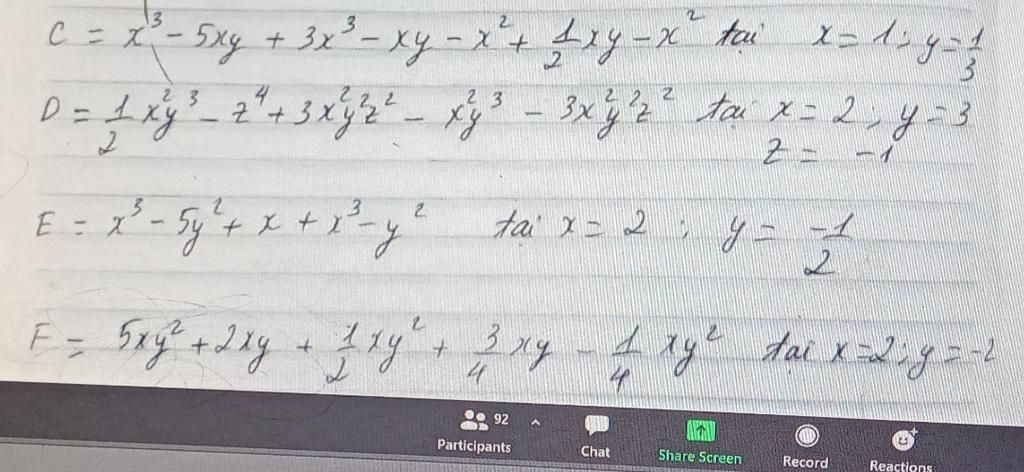 C = x³ - 5xy + 3x³ - xy - x² + 1/2 xy - x² tại x = 1 ; y = 1/3
D = 1/2 x²y³ - z⁴ + 3x²y²z² - x²y³ - 3x²y²z² tại x = 2, y = 3
z = -1
E = x³ - 5y² + x + x³ - y² tại x = 2 ; y = -1/2
F = 5xy² + 2xy + 1/2 xy² + 3/4 xy - 1/4 xy² tại x = 2 ; y = -2
92
Participants Chat Share Screen Record Reactions